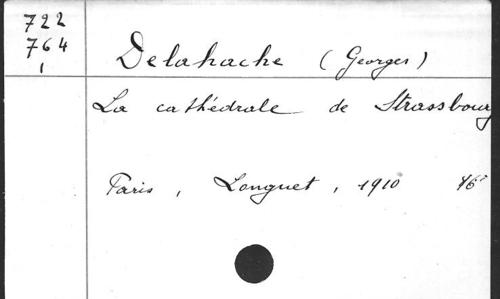 722
764
1
Delahache (Georges)
La cathédrale de Strassbourg
Paris, Longuet, 1910 16°